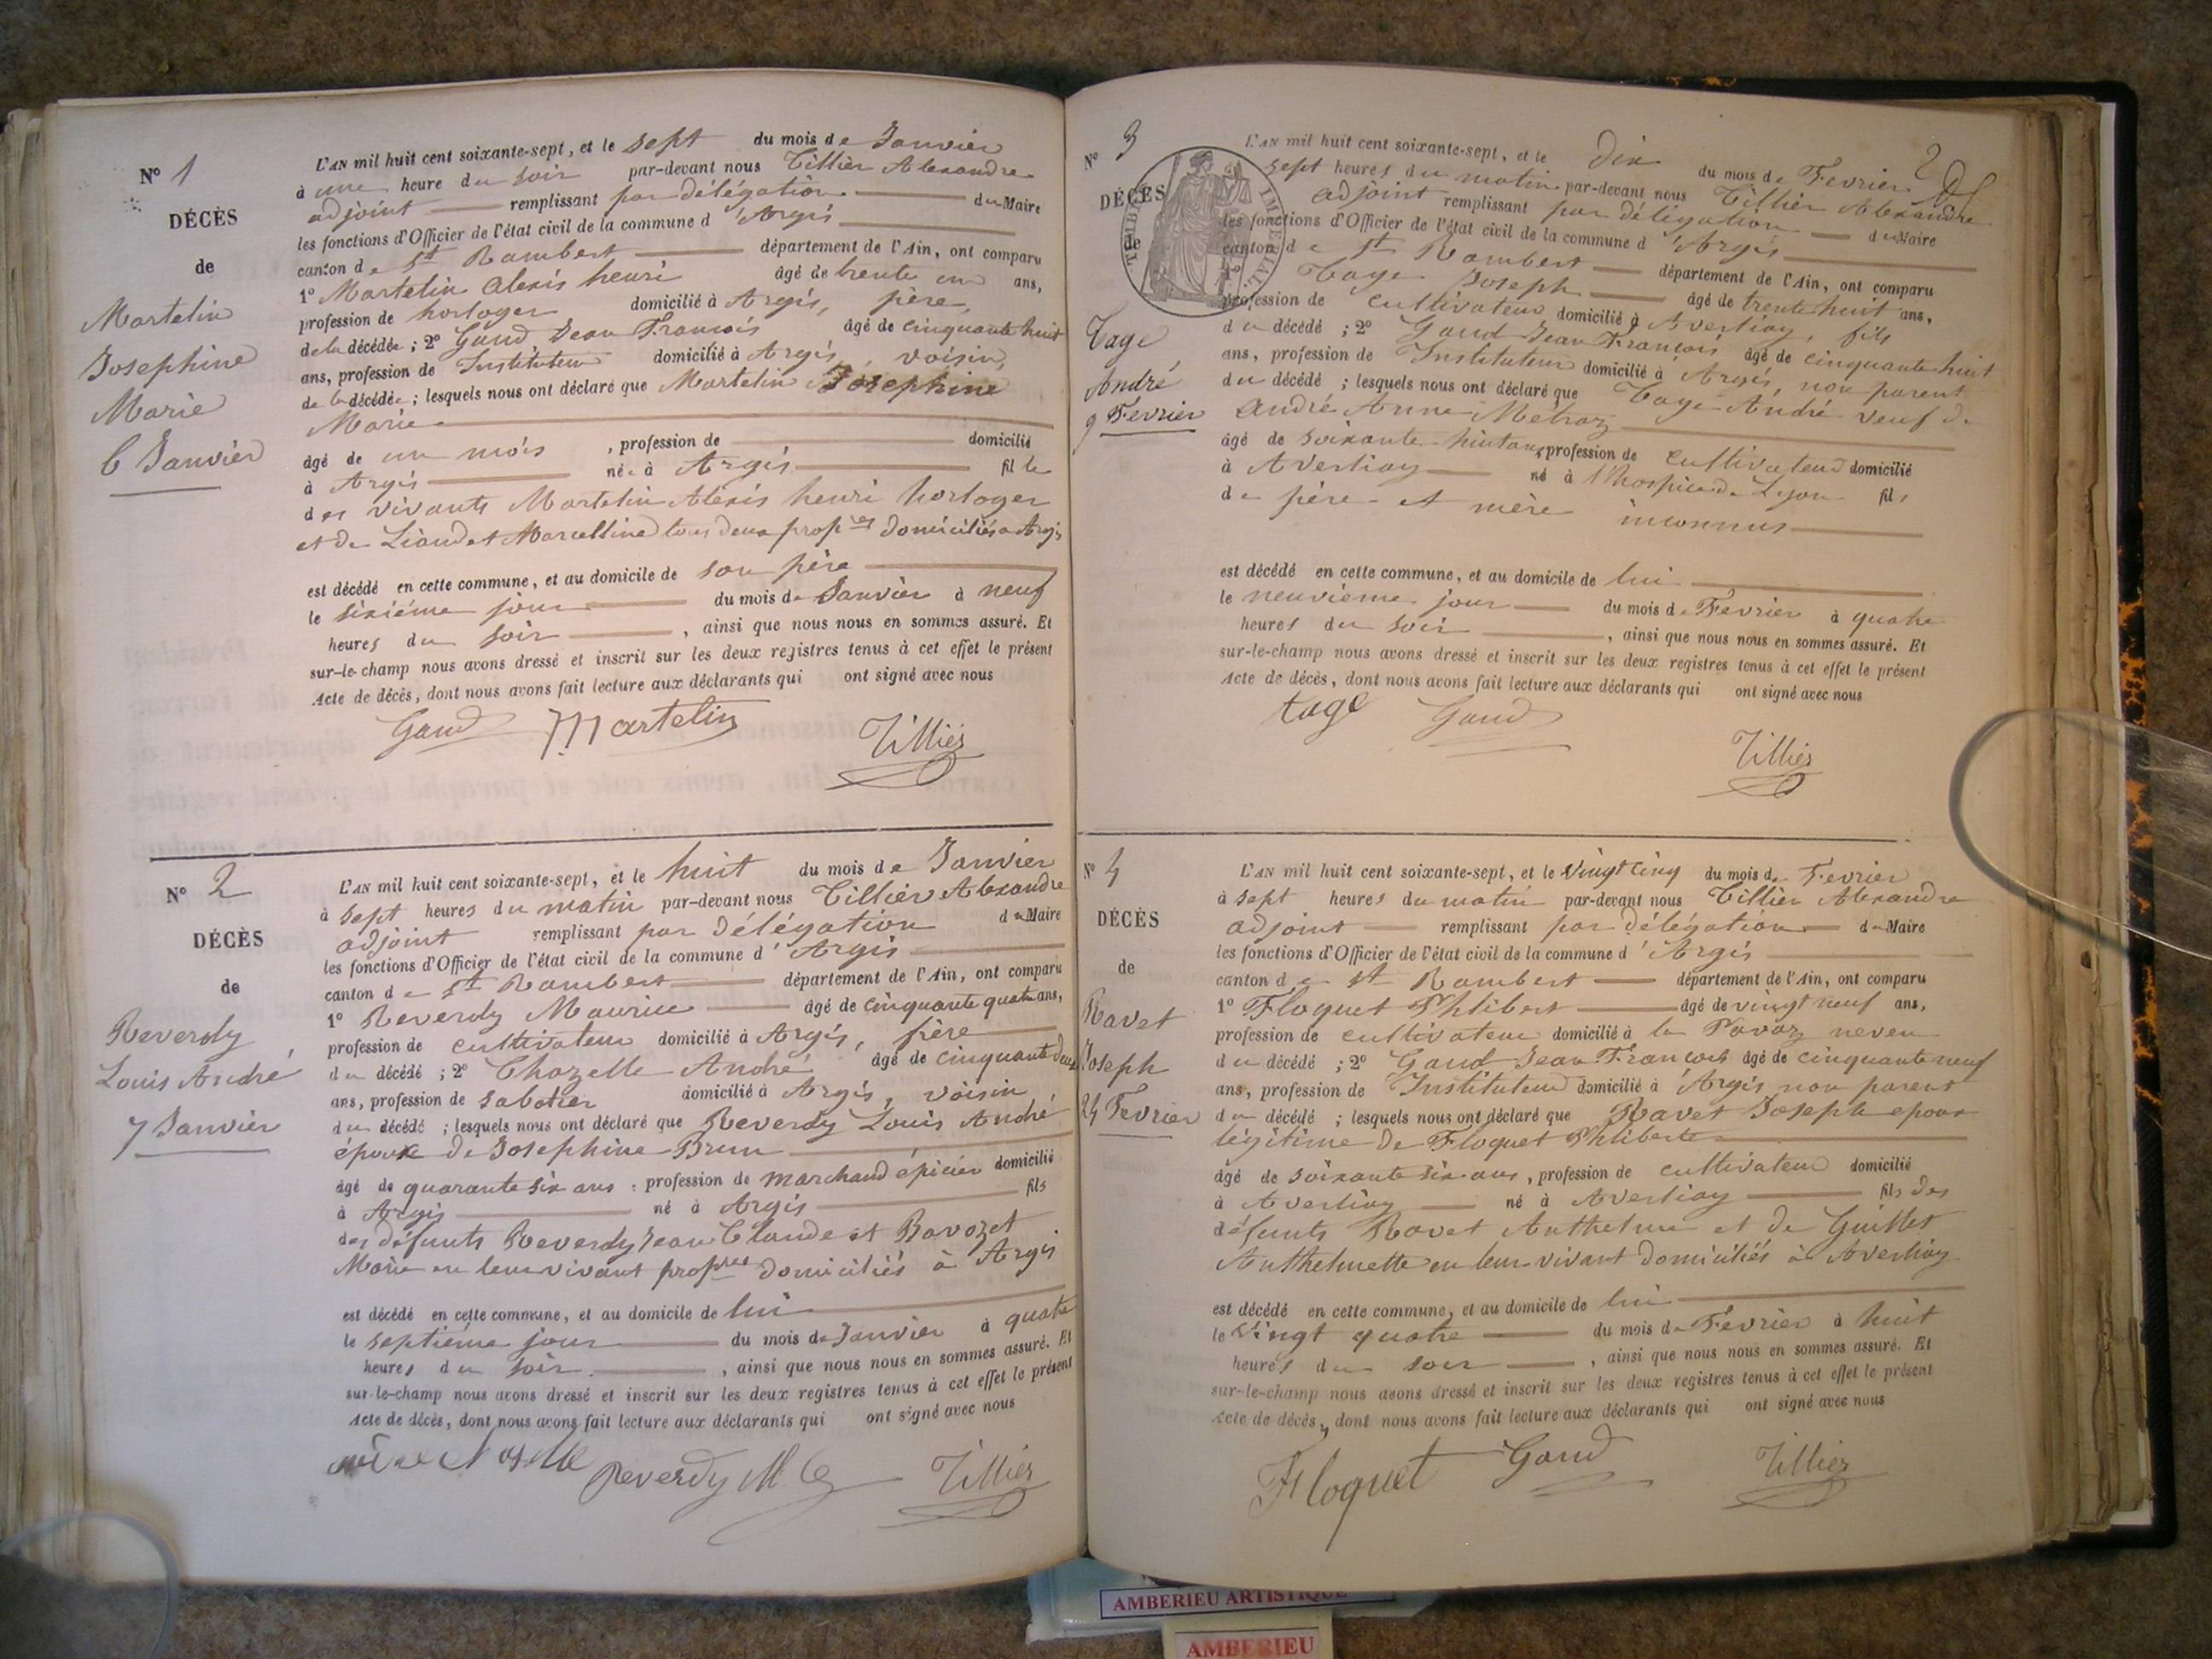 N° 1
DÉCÈS
de
Martelin
Josephine
Marie
6 Janvier
L'AN mil huit cent soixante-sept, et le sept du mois de Janvier
à une heure du soir par-devant nous Tillier Alexandre
adjoint remplissant par délégation du Maire
les fonctions d'Officier de l'état civil de la commune d'Argis
canton de St Rambert département de l'Ain, ont comparu
1° Martelin Alexis henri âgé de trente un ans,
profession de horloger domicilié à Argis, père
de la décédée ; 2° Gaud Jean François âgé de cinquante huit
ans, profession de Instituteur domicilié à Argis, voisin
de la décédée ; lesquels nous ont déclaré que Martelin Josephine
Marie
âgé de un mois , profession de domicilié
à Argis née à Argis fille
des vivants Martelin Alexis henri horloger
et de Liaudet Marcelline tous deux propres domiciliés a Argis
est décédé en cette commune, et au domicile de son père
le sixiéme jour du mois de Janvier à neuf
heures du soir , ainsi que nous nous en sommes assuré. Et
sur-le-champ nous avons dressé et inscrit sur les deux registres tenus à cet effet le présent
Acte de décès, dont nous avons fait lecture aux déclarants qui ont signé avec nous
Gaud Martelin Tillier
N° 2
DÉCÈS
de
Reverdy
Louis André
7 Janvier
L'AN mil huit cent soixante-sept, et le huit du mois de Janvier
à sept heures du matin par-devant nous Tillier Alexandre
adjoint remplissant par délégation du Maire
les fonctions d'Officier de l'état civil de la commune d'Argis
canton de St Rambert département de l'Ain, ont comparu
1° Reverdy Maurice âgé de cinquante quatre ans,
profession de cultivateur domicilié à Argis, frère
du décédé ; 2° Chazelle André âgé de cinquante deux
ans, profession de sabotier domicilié à Argis, voisin
du décédé ; lesquels nous ont déclaré que Reverdy Louis André
époux de Josephine Brun
âgé de quarante six ans , profession de marchand épicier domicilié
à Argis né à Argis fils
des défunts Reverdy Jean Claude et Ravozet
Marie en leur vivant propres domiciliés à Argis
est décédé en cette commune, et au domicile de lui
le septiéme jour du mois de Janvier à quatre
heures du soir , ainsi que nous nous en sommes assuré. Et
sur-le-champ nous avons dressé et inscrit sur les deux registres tenus à cet effet le présent
Acte de décès, dont nous avons fait lecture aux déclarants qui ont signé avec nous
Reverdy M Tillier
2
N° 3
DÉCÈS
de
TIMBRE IMPERIAL
Tage
André
9 Fevrier
L'AN mil huit cent soixante-sept, et le dix du mois de Fevrier
sept heures du matin par-devant nous Tillier Alexandre
adjoint remplissant par délégation du Maire
les fonctions d'Officier de l'état civil de la commune d'Argis
canton de St Rambert département de l'Ain, ont comparu
1° Tage Joseph âgé de trente huit ans,
profession de cultivateur domicilié à Averliay, fils
du décédé ; 2° Gaud Jean François âgé de cinquante huit
ans, profession de Instituteur domicilié à Argis, non parent
du décédé ; lesquels nous ont déclaré que Tage André veuf de
andré Anne Métraz
âgé de soixante-huit ans, profession de cultivateur domicilié
à Averliay né à l'hospice de Lyon fils
de père et mère inconnus
est décédé en cette commune, et au domicile de lui
le neuvième jour du mois de Fevrier à quatre
heures du soir , ainsi que nous nous en sommes assuré. Et
sur-le-champ nous avons dressé et inscrit sur les deux registres tenus à cet effet le présent
Acte de décès, dont nous avons fait lecture aux déclarants qui ont signé avec nous
tage Gaud Tillier
N° 4
DÉCÈS
de
Ravet
Joseph
24 Fevrier
L'AN mil huit cent soixante-sept, et le vingt cinq du mois de Fevrier
à sept heures du matin par-devant nous Tillier Alexandre
adjoint remplissant par délégation du Maire
les fonctions d'Officier de l'état civil de la commune d'Argis
canton de St Rambert département de l'Ain, ont comparu
1° Floquet Phlibert âgé de vingt neuf ans,
profession de cultivateur domicilié à la Pavaz neveu
du décédé ; 2° Gaud Jean François âgé de cinquante neuf
ans, profession de Instituteur domicilié à Argis non parent
du décédé ; lesquels nous ont déclaré que Ravet Joseph epoux
légitime de Floquet Phliberte
âgé de soixante six ans , profession de cultivateur domicilié
à Averliay né à Averliay fils des
défunts Ravet Anthelme et de Guillet
Anthelmette en leur vivant domiciliés à Averliay
est décédé en cette commune, et au domicile de lui
le vingt quatre du mois de Fevrier à huit
heures du soir , ainsi que nous nous en sommes assuré. Et
sur-le-champ nous avons dressé et inscrit sur les deux registres tenus à cet effet le présent
Acte de décès, dont nous avons fait lecture aux déclarants qui ont signé avec nous
Floquet Gaud Tillier
AMBERIEU ARTISTIQUE
AMBERIEU